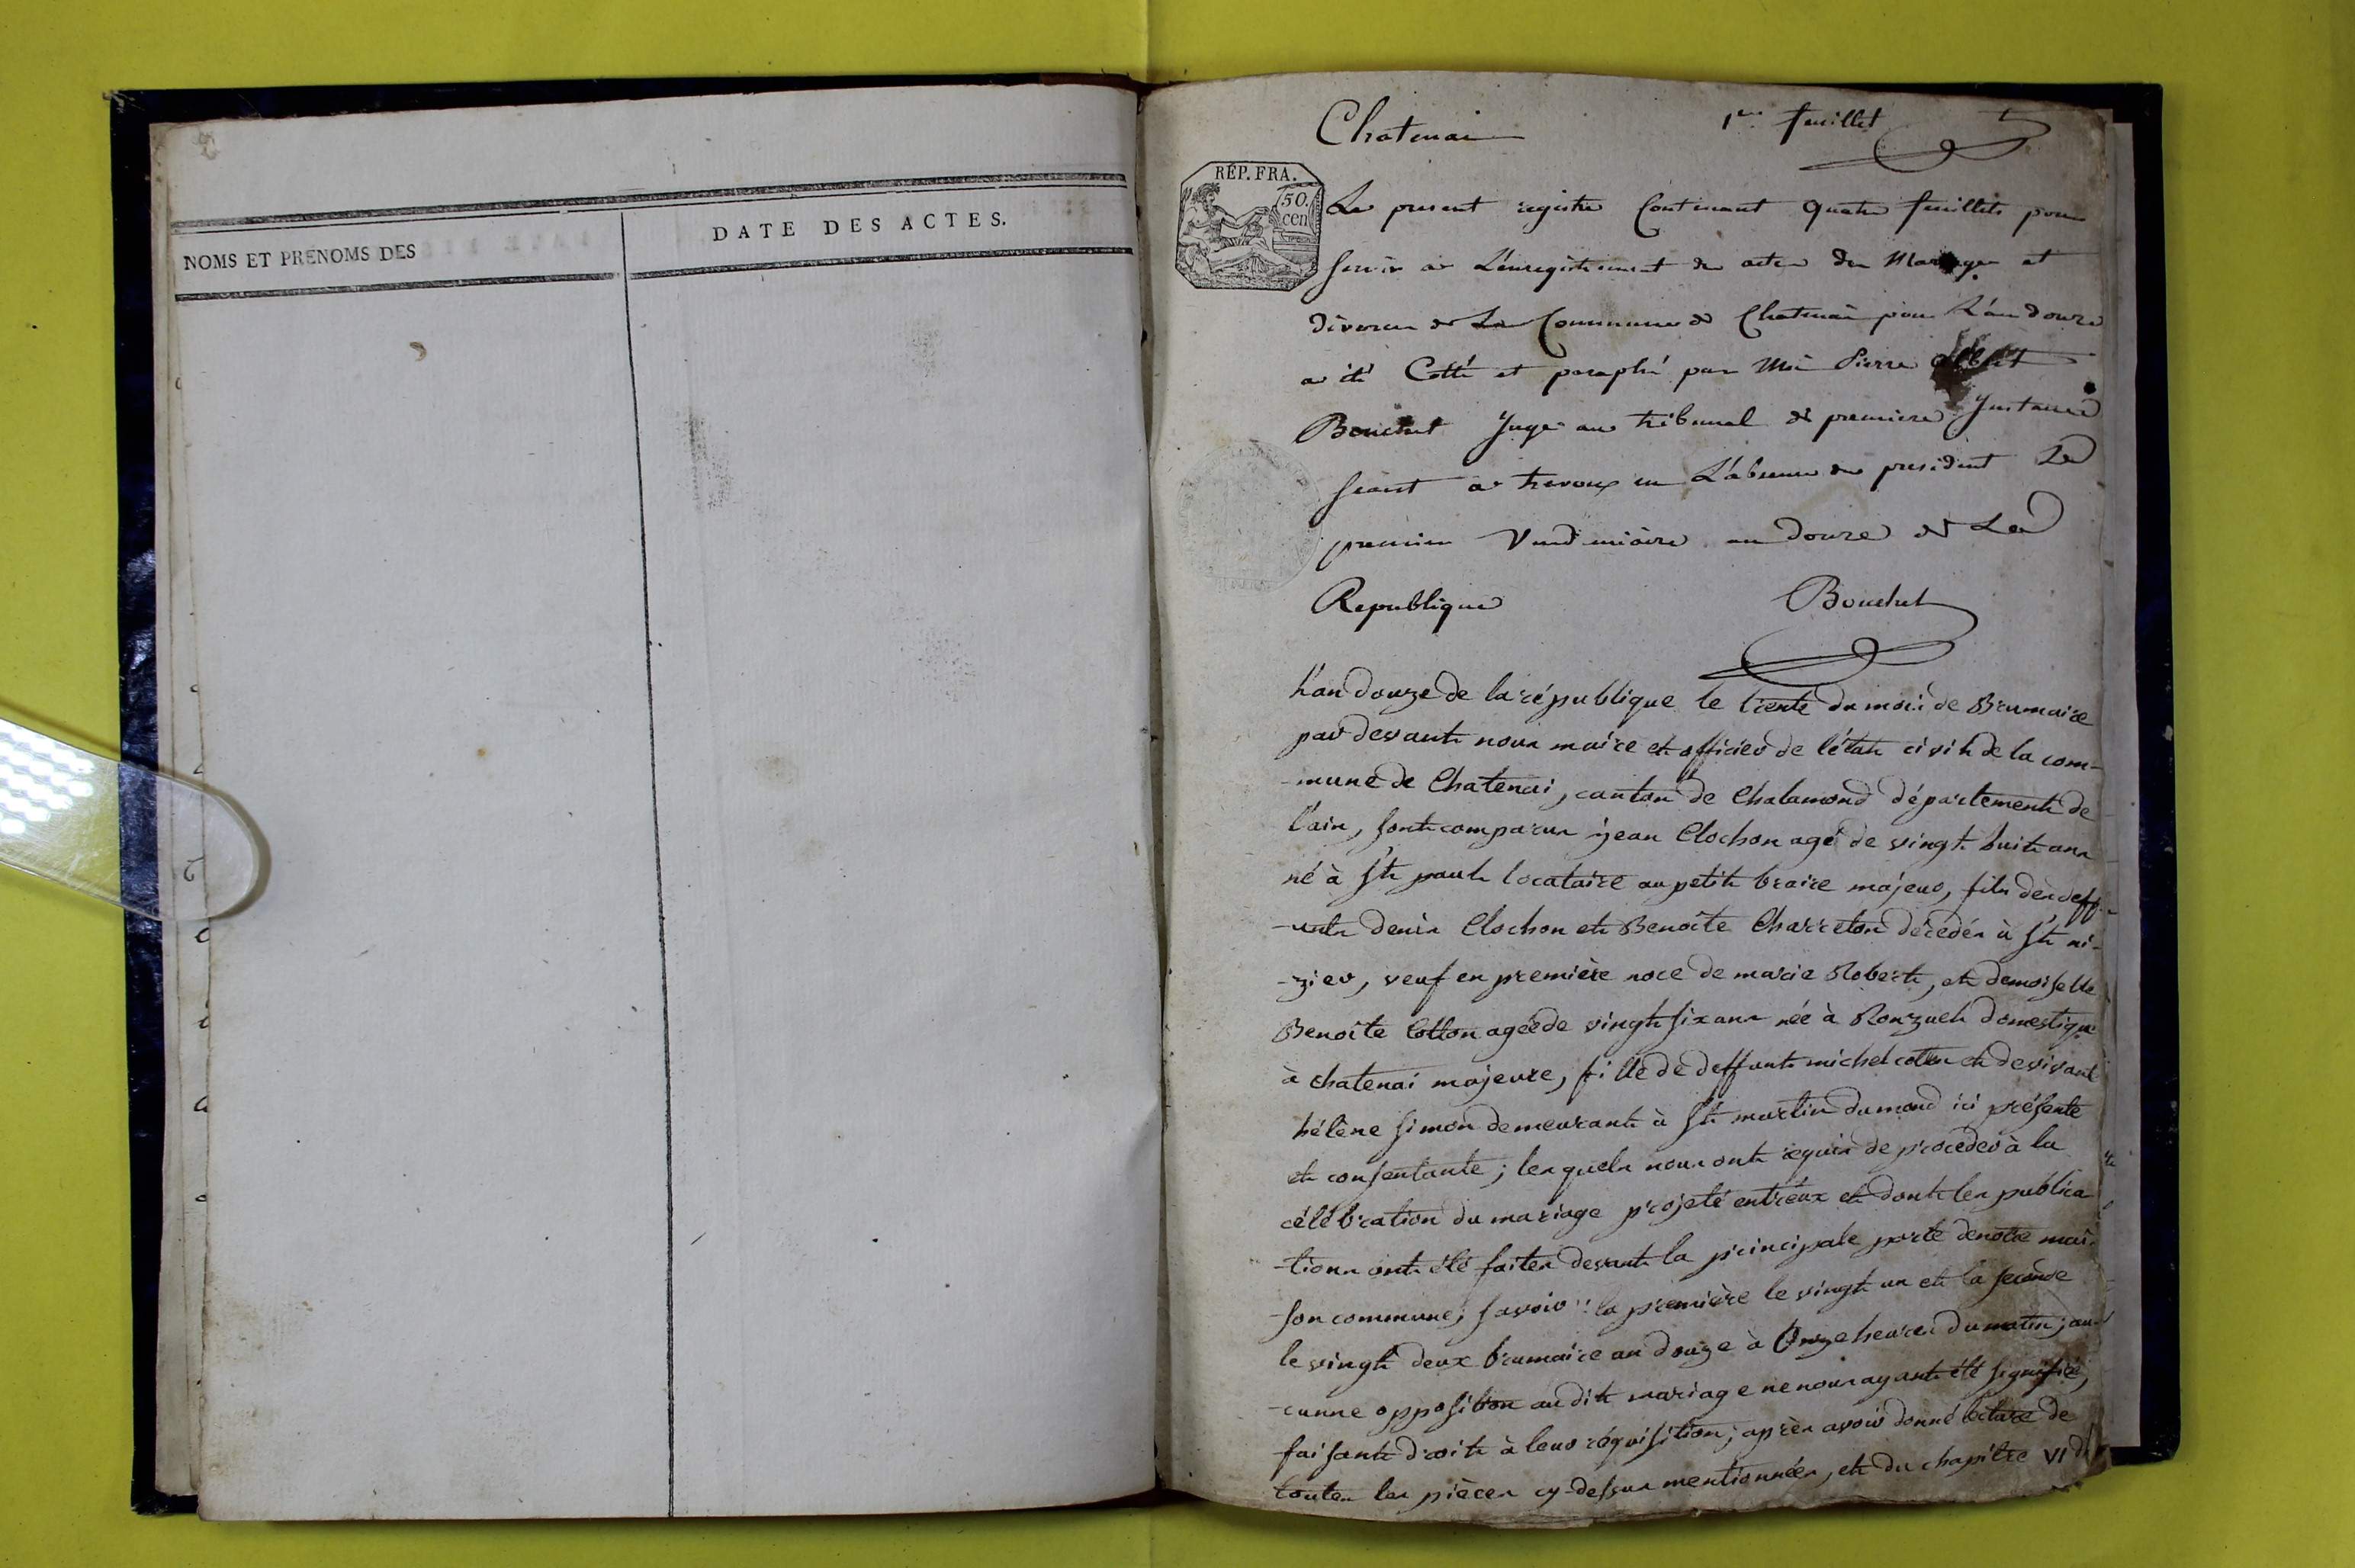 NOMS ET PRENOMS DES
DATE DES ACTES.
Chatenai
1er feuillet
RÉP. FRA.
50.
cen
Le present registre Contenant quatre feuillets pour
servir a L'enregistrement des actes de Mariage et
divorce de La Commune de Chatenai pour L'an douze
a été Cotté et paraphé par Moi Pierre
Bouchet Juge au tribunal de premiere Instance
seant a trevoux en L'absence du president Le
premier Vendemiaire an douze de La
Republique
Bouchet
L'an douze de la république le trente du mois de Brumaire
par devant nous maire et officier de l'état civil de la com-
-mune de Chatenai, canton de Chalamond département de
l'ain, sont comparus jean Clochon agé de vingt huit ans
né à St paul locataire au petit braire majeur, fils des deff-
-unts denis Clochon et Benoîte Charreton décédés à St ni-
-zier, veuf en première noce de marie Robert, et demoiselle
Benoîte Cotton agée de vingt six ans née à Ronzuel domestique
à chatenai majeure, fille de deffunt michel cotton et de vivant
hélène simon demeurant à St martin dumond ici présente
et consentante; lesquels nous ont requis de procéder à la
célébration du mariage projeté entr'eux et dont les publica
-tions ont été faites devant la principale porte de notre mai-
-son commune; savoir: la première le vingt un et la seconde
le vingt deux brumaire an douze à Onze heures du matin; au-
-cunne opposition audit mariage ne nous ayant été signifiée,
faisant droit à leur réquisition; après avoir donné lecture de
toutes les pièces cy-dessus mentionnées, et du chapitre VI du